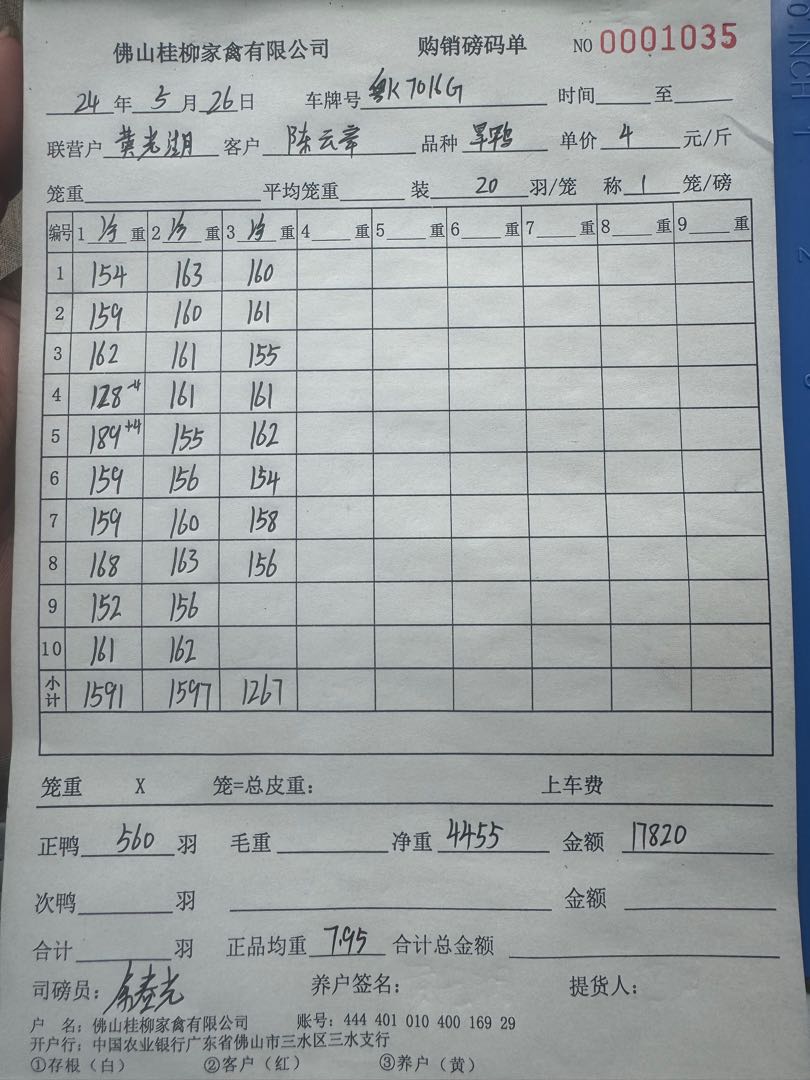 佛山桂柳家禽有限公司 购销磅码单 NO 0001035
24 年 5 月 26 日 车牌号 粤K7016G 时间 至
联营户 黄光湖 客户 陈云章 品种 旱鸭 单价 4 元/斤
笼重 平均笼重 装 20 羽/笼 称 1 笼/磅
编号 1 净 重 2 净 重 3 净 重 4 重 5 重 6 重 7 重 8 重 9 重
1 154 163 160
2 159 160 161
3 162 161 155
4 128-4 161 161
5 189+4 155 162
6 159 156 154
7 159 160 158
8 168 163 156
9 152 156
10 161 162
小计 1591 1597 1267
笼重 X 笼=总皮重: 上车费
正鸭 560 羽 毛重 净重 4455 金额 17820
次鸭 羽 金额
合计 羽 正品均重 7.95 合计总金额
司磅员: 养户签名: 提货人:
户 名: 佛山桂柳家禽有限公司 账号: 444 401 010 400 169 29
开户行: 中国农业银行广东省佛山市三水区三水支行
①存根(白) ②客户(红) ③养户(黄)